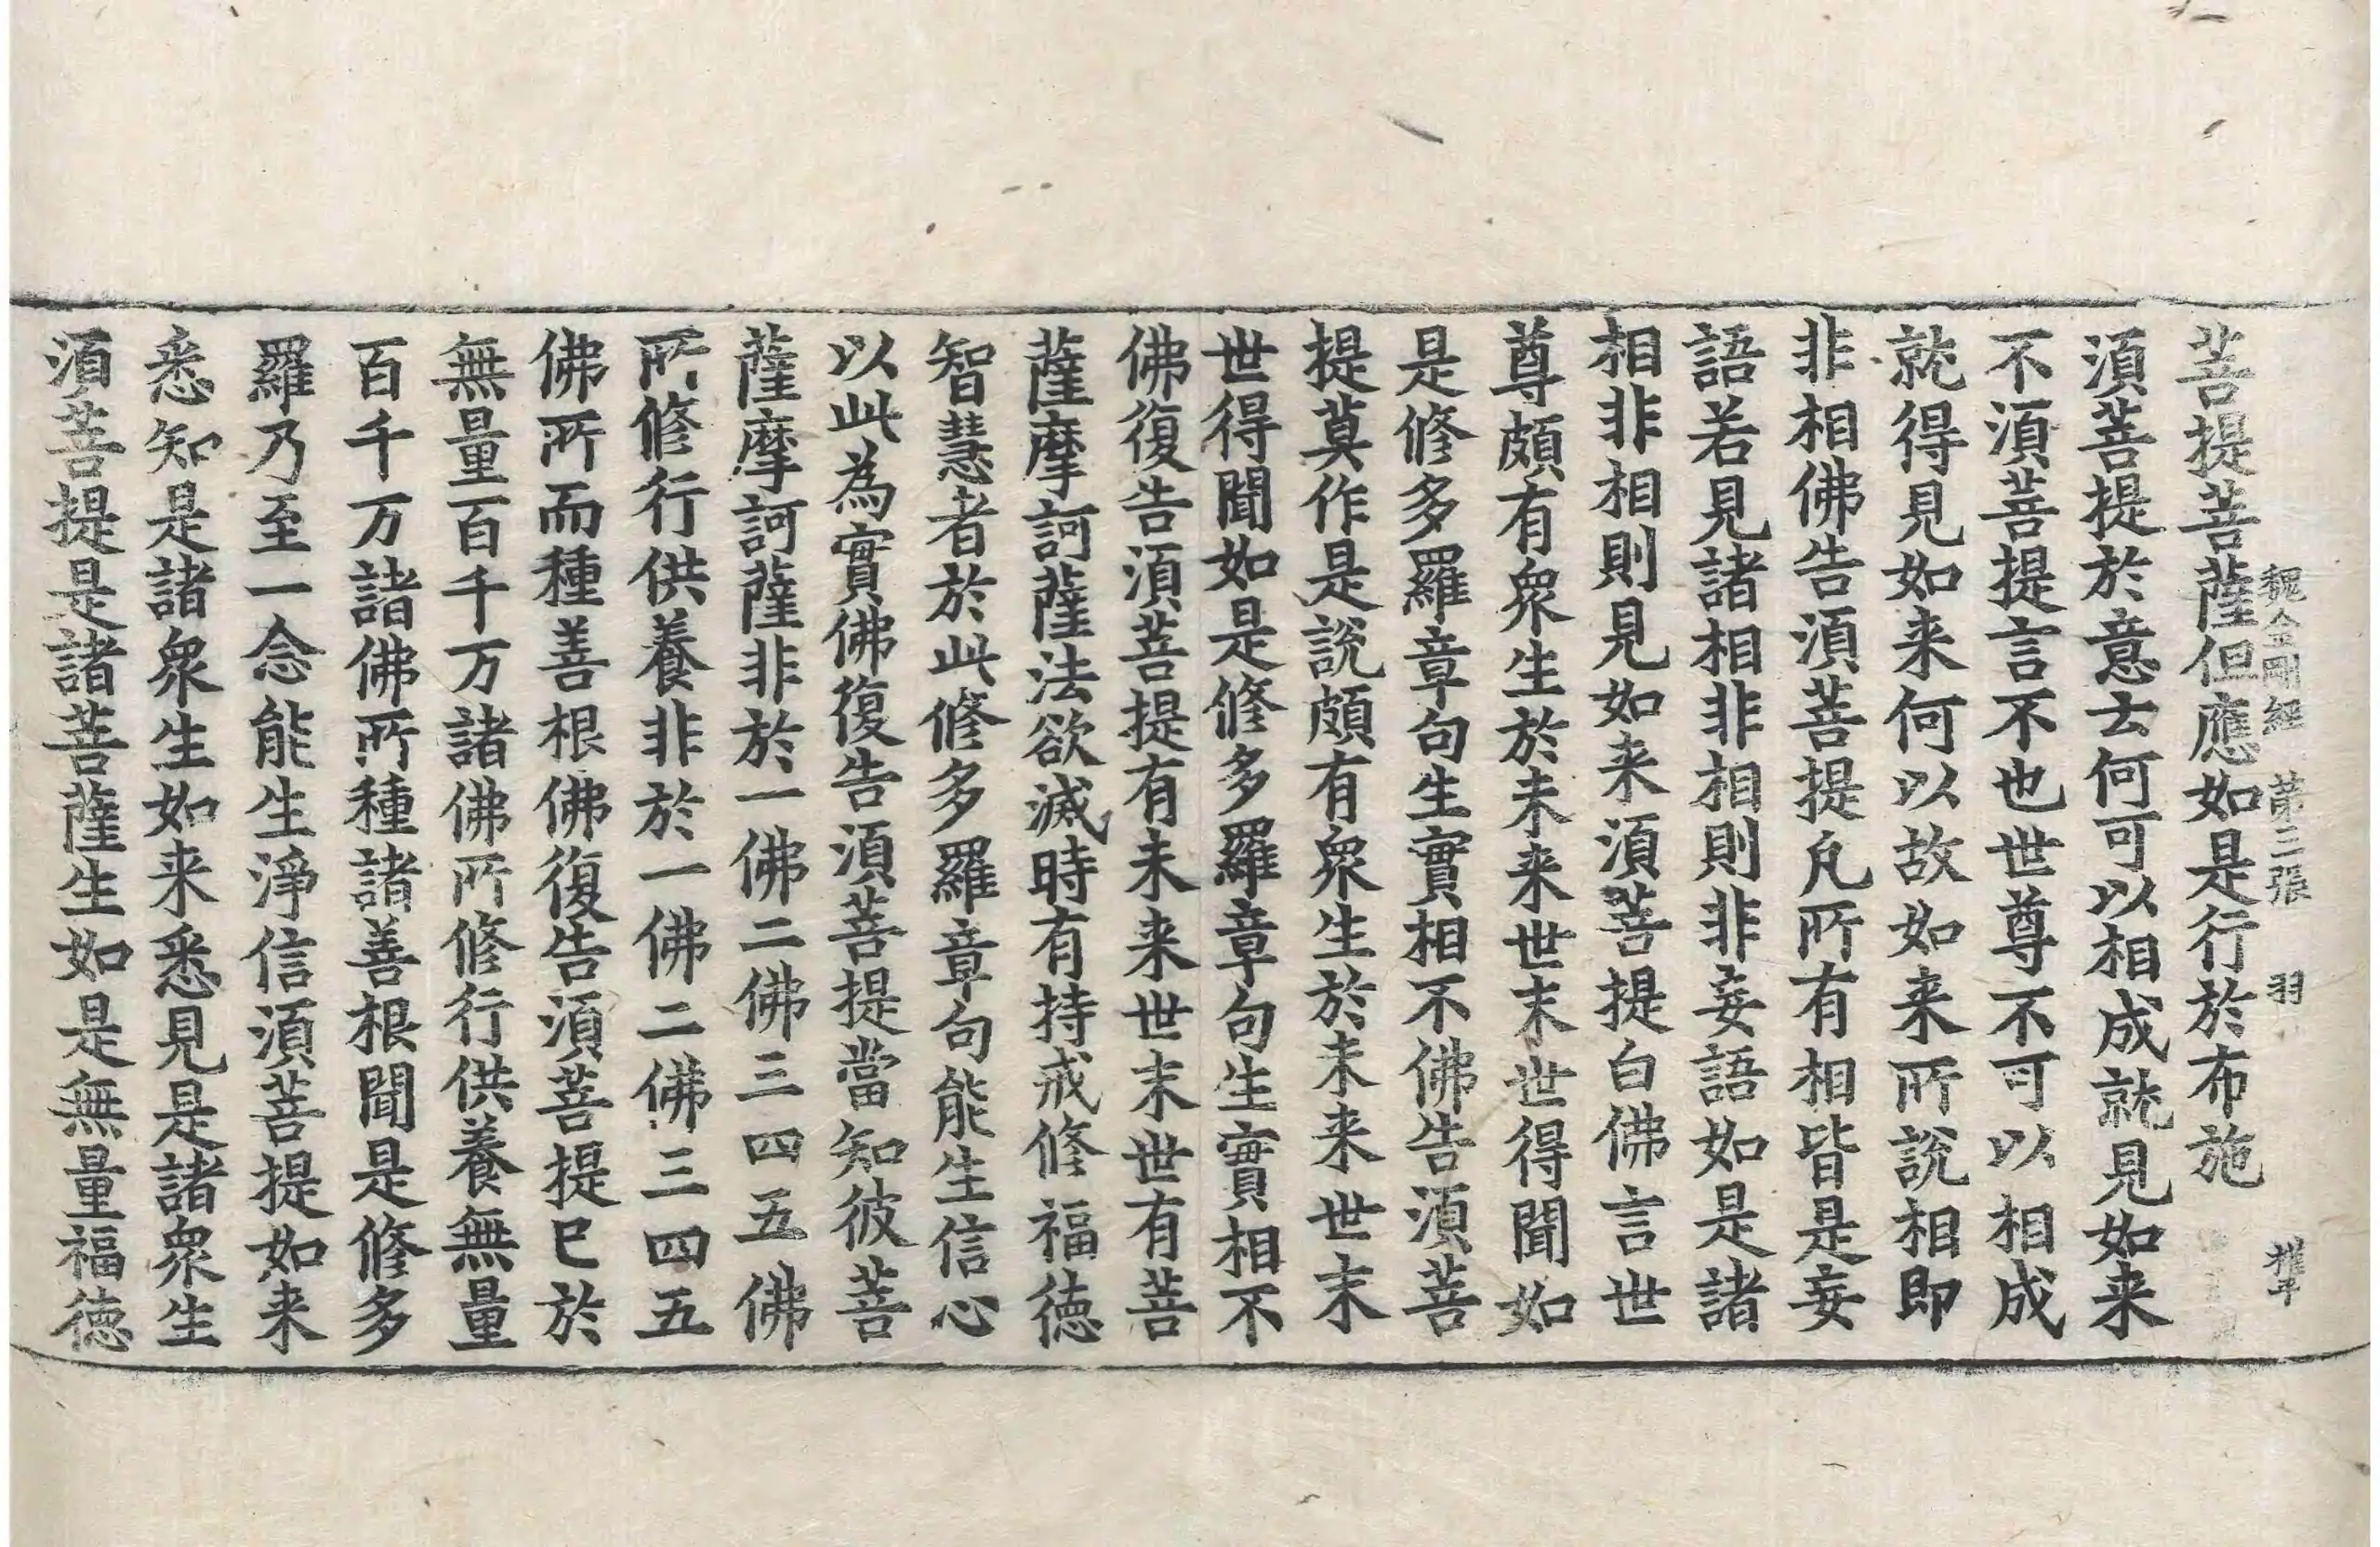 魏金剛經 第三張 羽
菩提菩薩但應如是行於布施
須菩提於意云何可以相成就見如来
不須菩提言不也世尊不可以相成
就得見如来何以故如来所說相即
非相佛告須菩提凡所有相皆是妄
語若見諸相非相則非妄語如是諸
相非相則見如来須菩提白佛言世
尊頗有衆生於未来世末世得聞如
是修多羅章句生實相不佛告須菩
提莫作是說頗有衆生於未来世末
世得聞如是修多羅章句生實相不
佛復告須菩提有未来世末世有菩
薩摩訶薩法欲滅時有持戒修福德
智慧者於此修多羅章句能生信心
以此為實佛復告須菩提當知彼菩
薩摩訶薩非於一佛二佛三四五佛
所修行供養非於一佛二佛三四五
佛所而種善根佛復告須菩提已於
無量百千万諸佛所修行供養無量
百千万諸佛所種諸善根聞是修多
羅乃至一念能生淨信須菩提如来
悉知是諸衆生如来悉見是諸衆生
須菩提是諸菩薩生如是無量福德